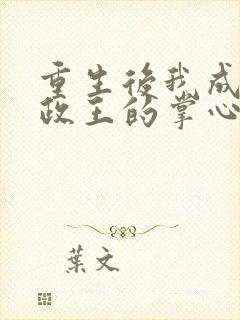 重生後我成
政王的掌心
葉文